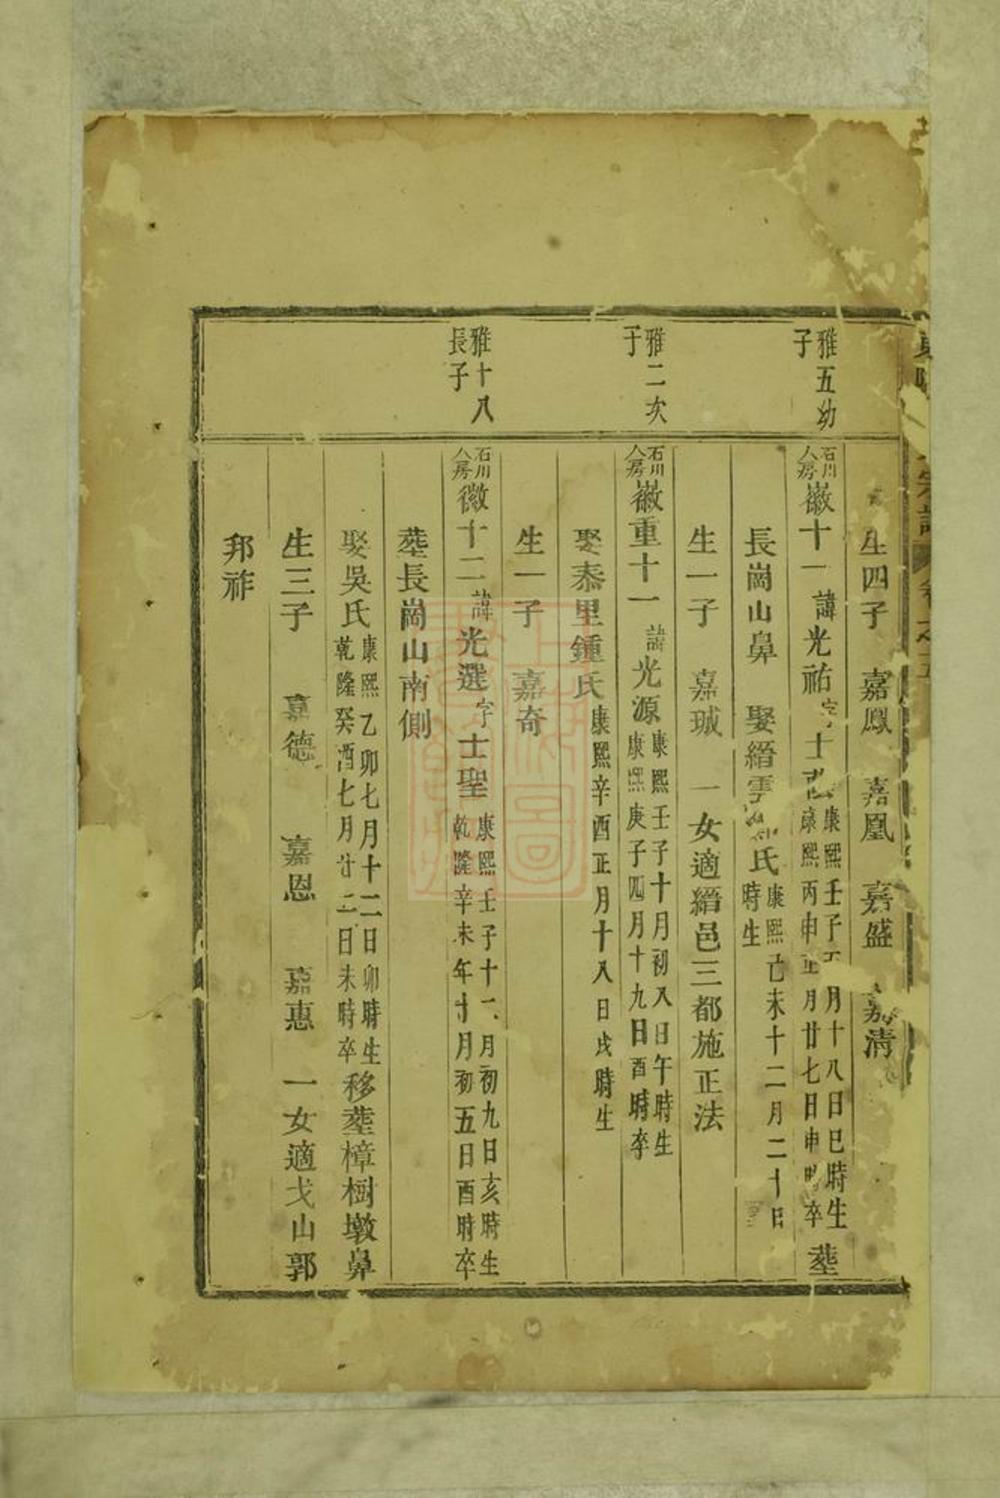 宗譜 卷之五
生四子 嘉鳳 嘉凰 嘉盛 嘉清
雅五幼子
石川八房徽十一諱光祐字士 康熙壬子 月十八日巳時生 康熙丙申正月廿七日申時卒 塟
長崗山鼻 娶縉雲 氏康熙己未十二月二十日 時生
生一子 嘉珹 一女適縉邑三都施正法
雅二次子
石川八房徽重十一諱光源康熙壬子十月初八日午時生 康熙庚子四月十九日酉時卒
娶泰里鍾氏康熙辛酉正月十八日戌時生
生一子 嘉奇
雅十八長子
石川八房徽十二諱光選字士聖康熙壬子十二月初九日亥時生 乾隆辛未年十月初五日酉時卒
塟長崗山南側
娶吳氏康熙乙卯七月十二日卯時生 乾隆癸酉七月廿二日未時卒移塟樟樹墩鼻
生三子 嘉德 嘉恩 嘉惠 一女適戈山郭
邦祚